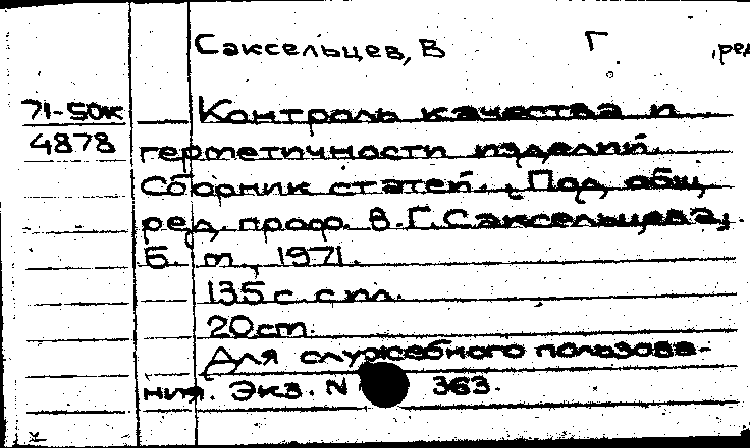 Саксельцев, В Г , ред
71-50к Контроль качества и
4878 герметичности изделий.
Сборник статей. Под общ.
ред. проф. В.Г.Саксельцева,
Б. м., 1971.
135 с. с ил.
20 ст.
Для служебного пользова-
ния. Экз. N 363.